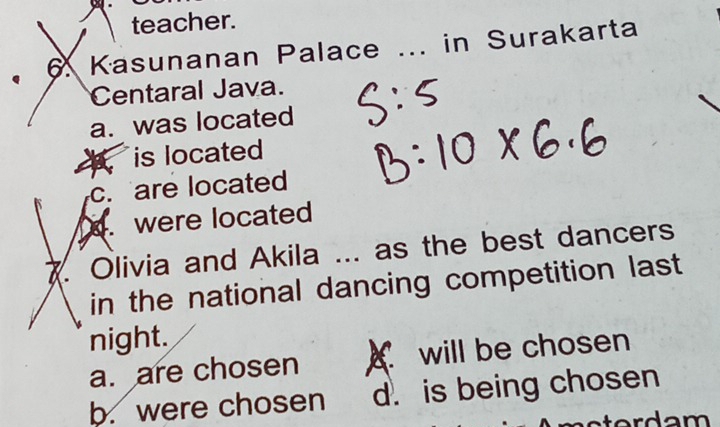 teacher.
6. Kasunanan Palace ... in Surakarta
Centaral Java.
a. was located
b. is located
c. are located
d. were located
S:5
B:10 x 6.6
7. Olivia and Akila ... as the best dancers
in the national dancing competition last
night.
a. are chosen
b. were chosen
c. will be chosen
d. is being chosen
Amsterdam